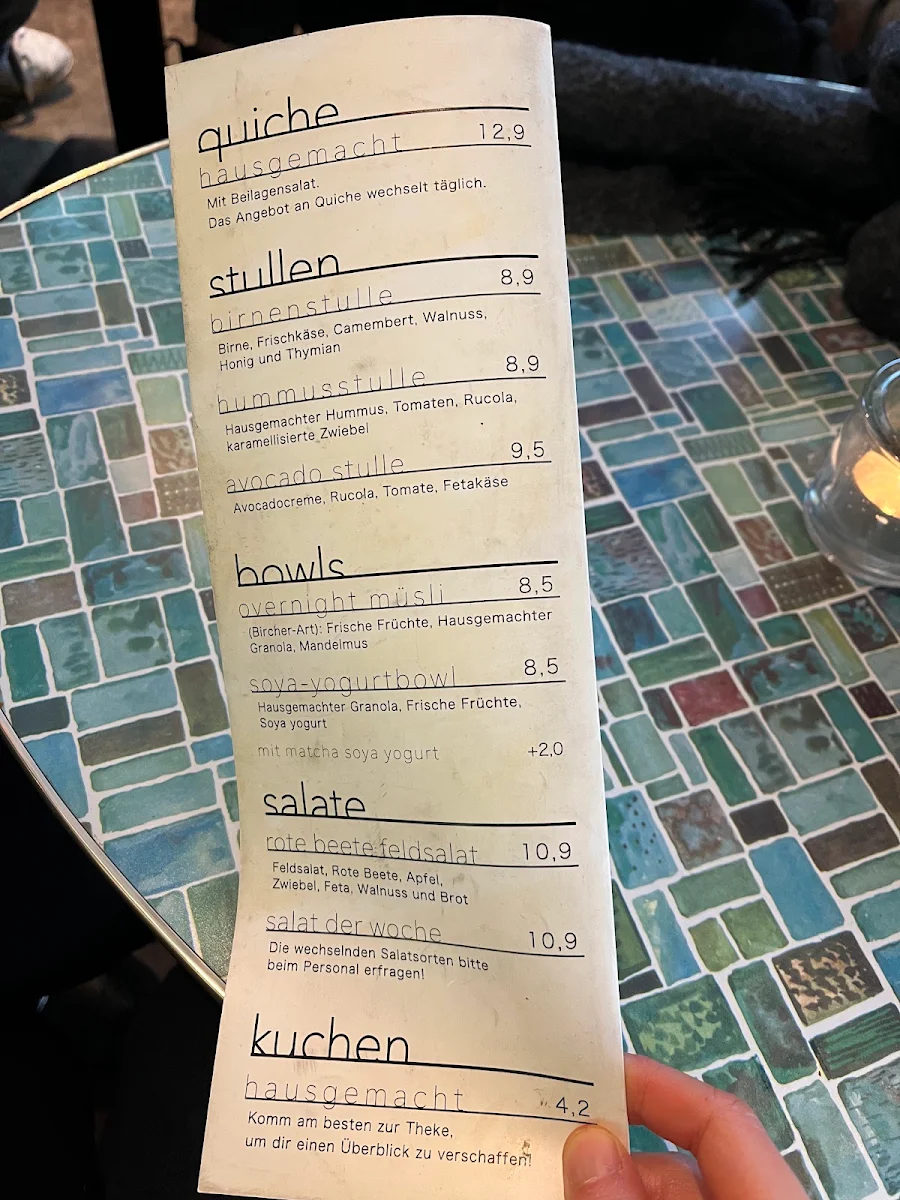 quiche
hausgemacht 12,9
Mit Beilagensalat.
Das Angebot an Quiche wechselt täglich.
stullen
birnenstulle 8,9
Birne, Frischkäse, Camembert, Walnuss,
Honig und Thymian
hummusstulle 8,9
Hausgemachter Hummus, Tomaten, Rucola,
karamellisierte Zwiebel
avocado stulle 9,5
Avocadocreme, Rucola, Tomate, Fetakäse
bowls
overnight müsli 8,5
(Bircher-Art): Frische Früchte, Hausgemachter
Granola, Mandelmus
soya-yogurtbowl 8,5
Hausgemachter Granola, Frische Früchte,
Soya yogurt
mit matcha soya yogurt +2,0
salate
rote beete feldsalat 10,9
Feldsalat, Rote Beete, Apfel,
Zwiebel, Feta, Walnuss und Brot
salat der woche 10,9
Die wechselnden Salatsorten bitte
beim Personal erfragen!
kuchen
hausgemacht 4,2
Komm am besten zur Theke,
um dir einen Überblick zu verschaffen!